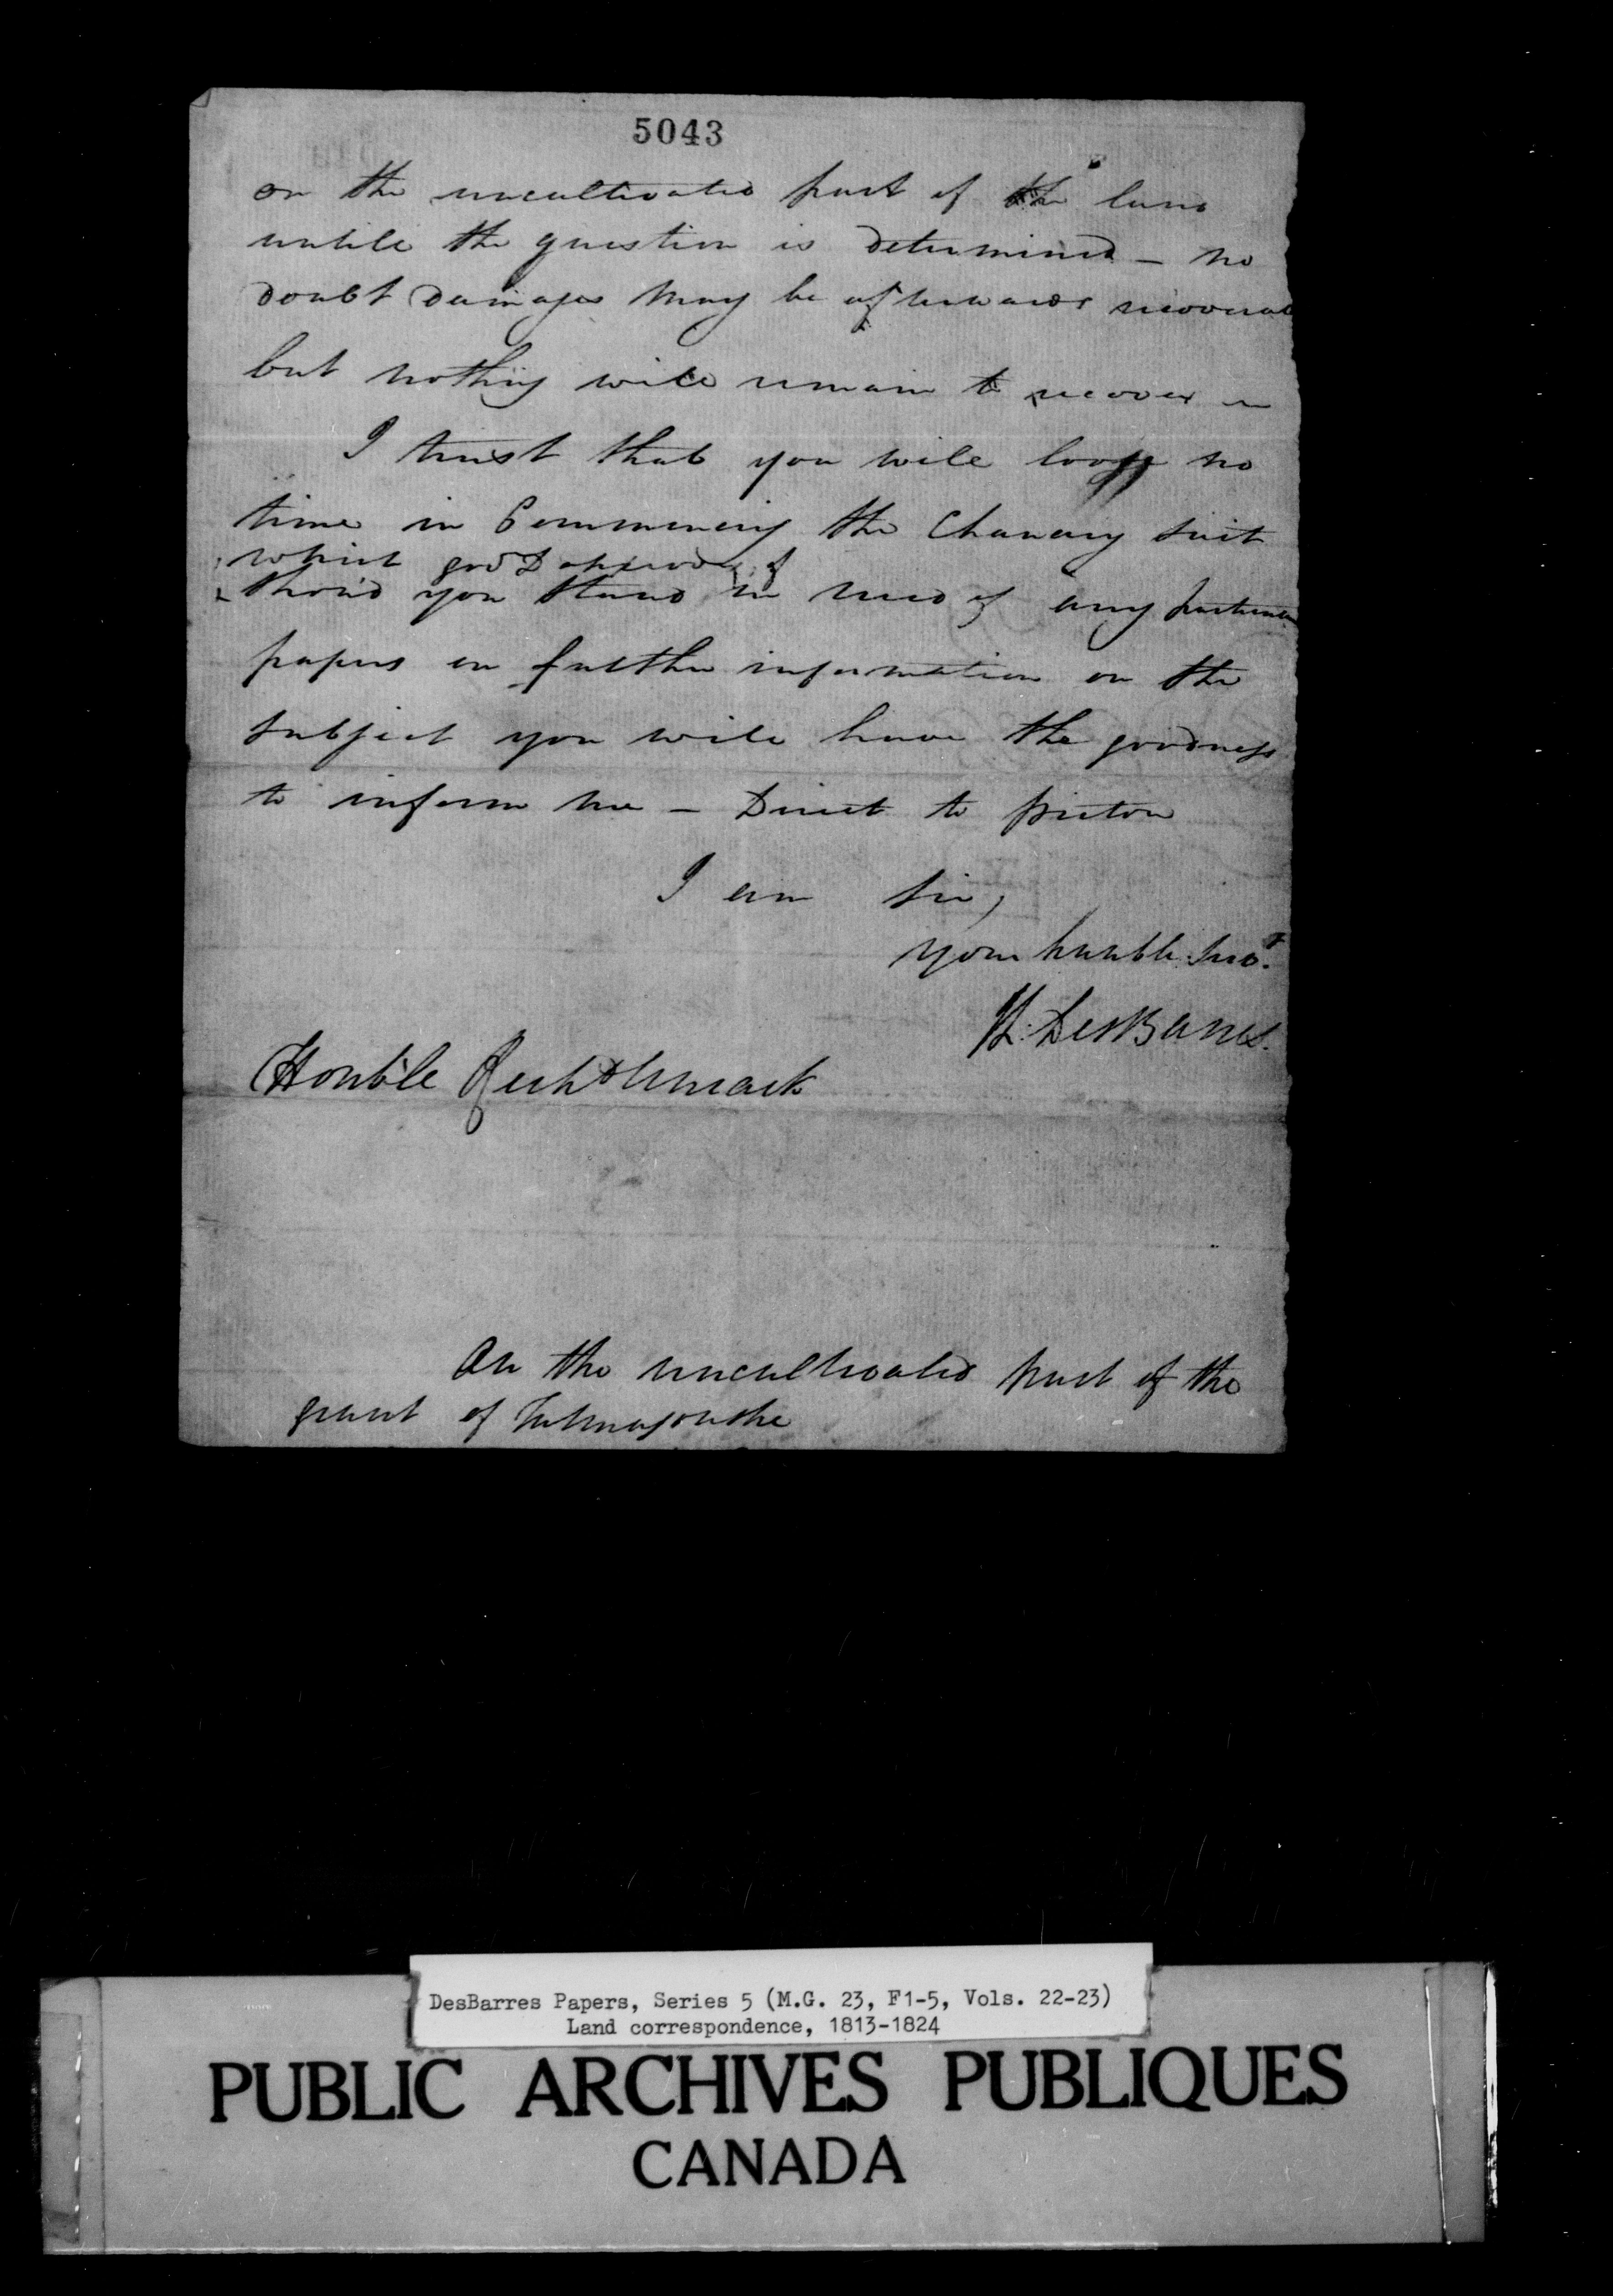 5043
on the uncultivated part of the land
untile the question is determined - no
doubt Damages may be afterwards recovered
but nothing will remain to recover
I trust that you will loose no
time in Commencing the Chancery suit
which god D approves of
shou'd you stand in need of any particular
papers or further information on the
subject you will have the goodness
to inform me - Direct to pictou
I am Sir,
your humble Servt.
DesBarres.
Honble
On the uncultivated part of the
grant of Tatmagouche
DesBarres Papers, Series 5 (M.G. 23, F1-5, Vols. 22-23)
Land correspondence, 1813-1824
PUBLIC ARCHIVES PUBLIQUES
CANADA